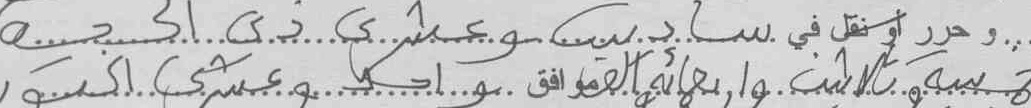 و حرر او نقل في سادس وعشرى ذى الحجة
سنة وثلاثين واربعمائة الموافق واحد وعشرى اكتوبر